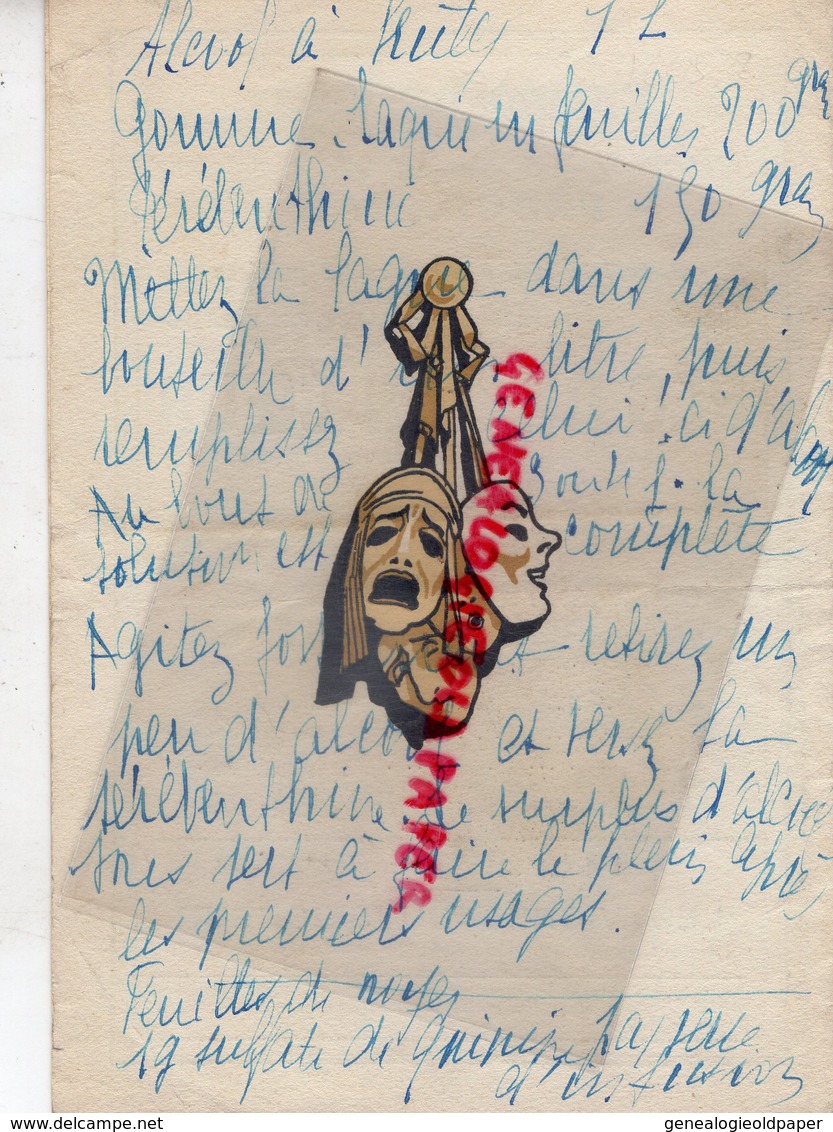 Alcool à 1 L
Gomme laque en feuilles 200 gra
Térébenthine 150 gra
Mettez la laque dans une
bouteille d' litre, puis
remplissez celui-ci d'alcool
Au bout de la
solution est complète
Agitez et retirez un
peu d'alcool et versez la
térébenthine. Le surplus d'alcool
vous sert à faire le plein après
les premiers usages.
Feuilles de noyer
1g sulfate de quinine
d'infusion
GENEALOGIEOLDPAPER
genealogieoldpaper